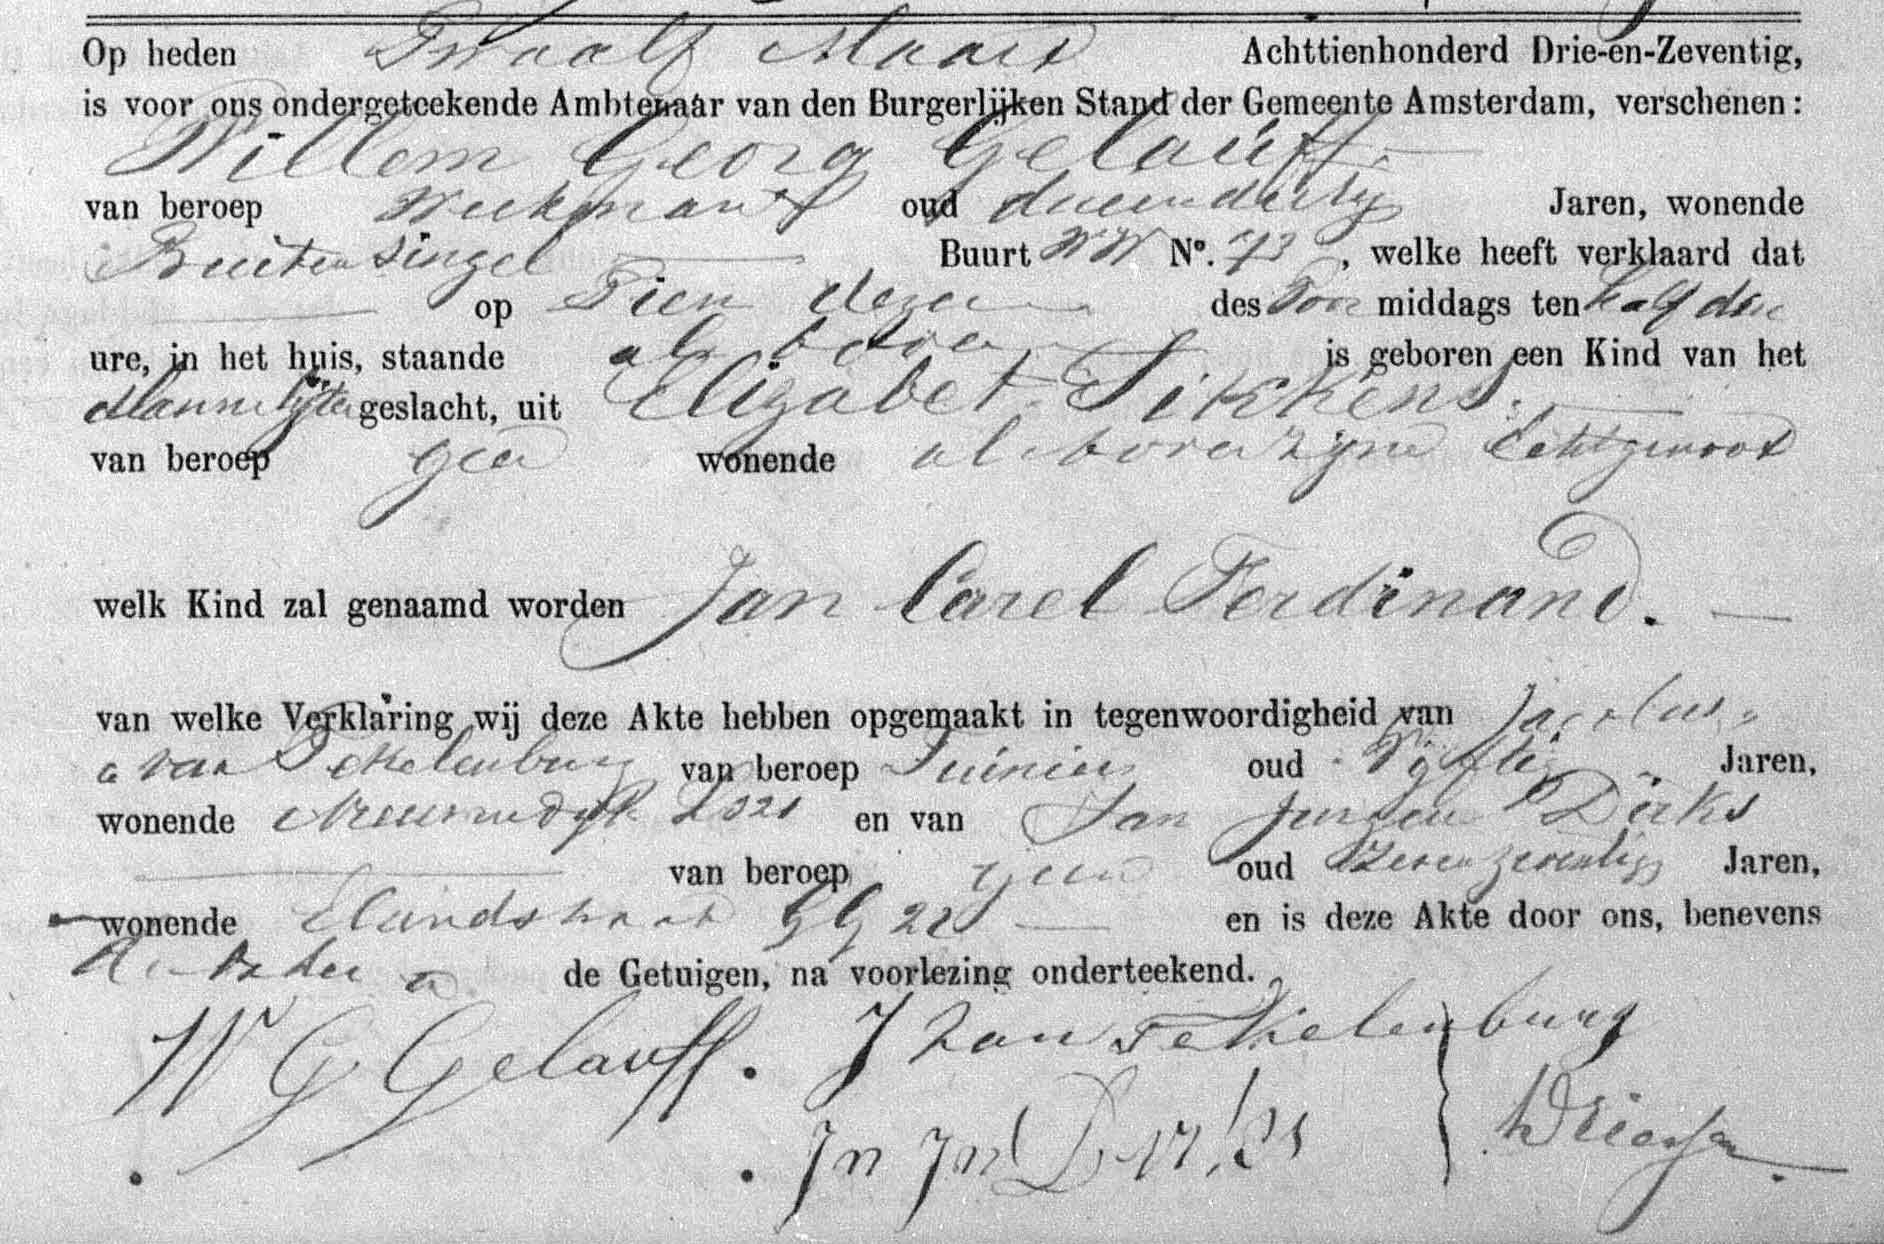 Op heden Twaalf Maart Achttienhonderd Drie-en-Zeventig,
is voor ons ondergeteekende Ambtenaar van den Burgerlijken Stand der Gemeente Amsterdam, verschenen:
Willem Georg Gelauff
van beroep Werkman oud drieendertig Jaren, wonende
Buitensingel Buurt WW No. 73, welke heeft verklaard dat
op Tien dezer des Voor middags ten half drie
ure, in het huis, staande als boven is geboren een Kind van het
Mannelijke geslacht, uit Elizabet Sikkens.
van beroep geen wonende als boven zijne Echtgenoot
welk Kind zal genaamd worden Jan Carel Ferdinand.
van welke Verklaring wij deze Akte hebben opgemaakt in tegenwoordigheid van Jacobus
van Tekelenburg van beroep Tuinier oud Vijftig Jaren,
wonende Nieuwendijk L321 en van Jan Jurgen Dirks
van beroep geen oud Zevenzeventig Jaren,
wonende Elandstraat GG 22 en is deze Akte door ons, benevens
de Getuigen, na voorlezing onderteekend.
W G Gelauff. J van Tekelenburg
Jn Jn Dirks